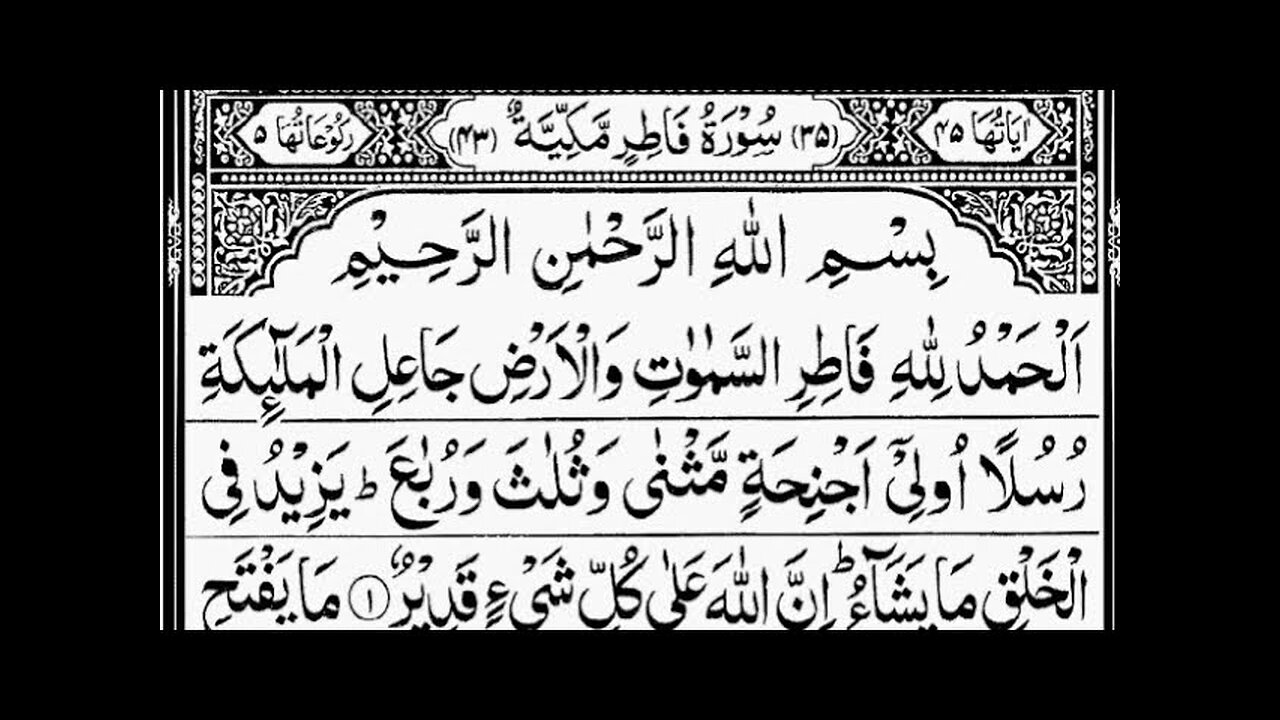 اٰيَاتُهَا ٤٥ (٣٥) سُوْرَةُ فَاطِرٍ مَّكِّيَّةٌ (٤٣) رُكُوْعَاتُهَا ٥
بِسْمِ اللّٰهِ الرَّحْمٰنِ الرَّحِيْمِ
اَلْحَمْدُ لِلّٰهِ فَاطِرِ السَّمٰوٰتِ وَالْاَرْضِ جَاعِلِ الْمَلٰٓئِكَةِ
رُسُلًا اُولِيْٓ اَجْنِحَةٍ مَّثْنٰى وَثُلٰثَ وَرُبٰعَ ؕ يَزِيْدُ فِي
الْخَلْقِ مَا يَشَآءُ ؕ اِنَّ اللّٰهَ عَلٰى كُلِّ شَيْءٍ قَدِيْرٌ ١ مَا يَفْتَحِ